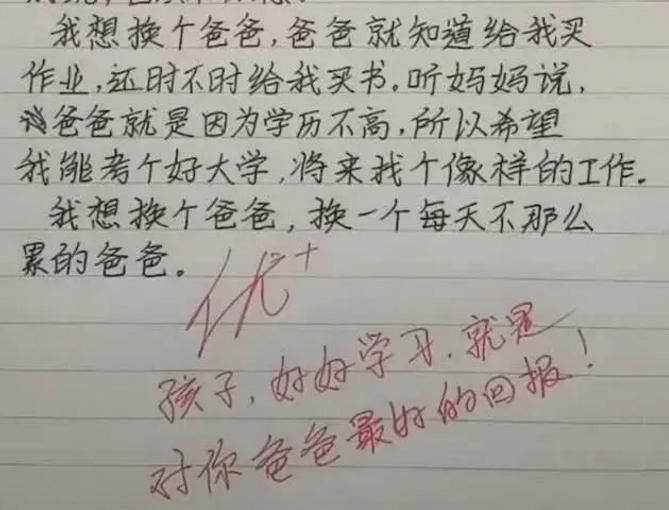 我想换个爸爸,爸爸就知道给我买
作业,还时不时给我买书。听妈妈说,
爸爸就是因为学历不高,所以希望
我能考个好大学,将来找个像样的工作。
我想换个爸爸,换一个每天不那么
累的爸爸。
优+
孩子,好好学习,就是
对你爸爸最好的回报!